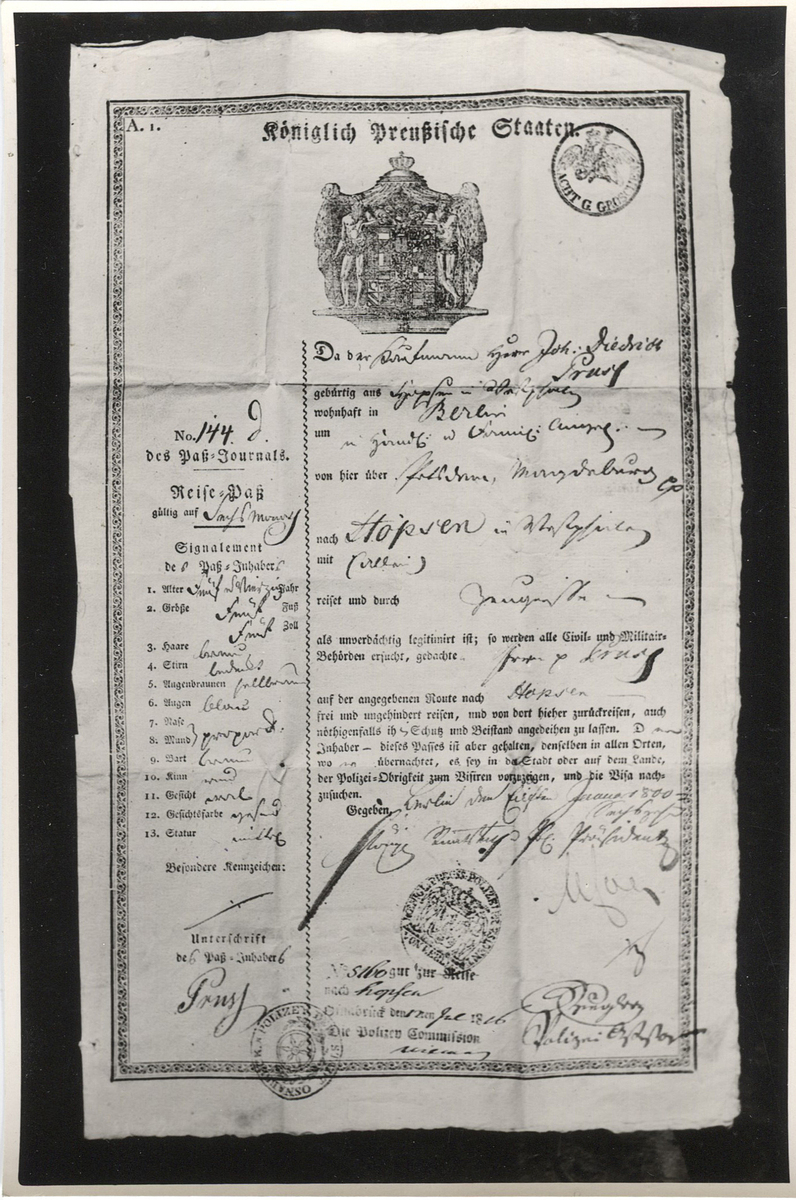 A. 1.
Königlich Preußische Staaten.
ACHT G. GROSCH
Da der Kaufmann Herr Joh: Diedrich
gebürtig aus Hopsen in Westphalen
wohnhaft in Berlin
um
von hier über Potsdam, Magdeburg
nach Hopsen in Westphalen
mit (allein)
reiset und durch Zeugnisse
als unverdächtig legitimirt ist; so werden alle Civil- und Militair-
Behörden ersucht, gedachte
auf der angegebenen Route nach Hopsen
frei und ungehindert reisen, und von dort hieher zurückreisen, auch
nöthigenfalls ih Schutz und Beistand angedeihen zu lassen. D
Inhaber — dieses Passes ist aber gehalten, denselben in allen Orten,
wo übernachtet, es sey in der Stadt oder auf dem Lande,
der Polizei-Obrigkeit zum Visiren vorzuzeigen, und die Visa nach-
zusuchen.
Gegeben Berlin den
Präsident
No. 144.
des Paß-Journals.
Reise-Paß
gültig auf Sechs Monath
Signalement
des Paß-Inhabers
1. Alter Fünf u Vierzig Jahr
2. Größe Fünf Fuß
Fünf Zoll
3. Haare braun
4. Stirn bedeckt
5. Augenbraunen hellbraun
6. Augen blau
7. Nase
8. Mund } proport.
9. Bart braun
10. Kinn rund
11. Gesicht oval
12. Gesichtsfarbe gesund
13. Statur mittel
Besondere Kennzeichen:
Unterschrift
des Paß-Inhabers
gut zur Reise
nach Hopsen
Osnabrück den Jul 1816
Die Polizey Commission